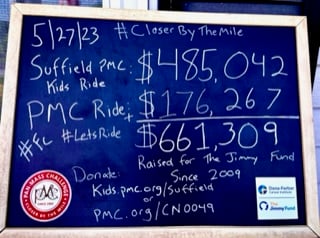 5/27/23 #CloserByTheMile
Suffield PMC: $485,042
Kids Ride
PMC Ride: + $176,267
#FC #LetsRide $661,309
Raised for The Jimmy Fund
Since 2009
Donate:
Kids.pmc.org/Suffield
or
PMC.org/CN0049
PAN-MASS CHALLENGE
PMC
CLOSER BY THE MILE
Dana-Farber
Cancer Institute
The
Jimmy Fund